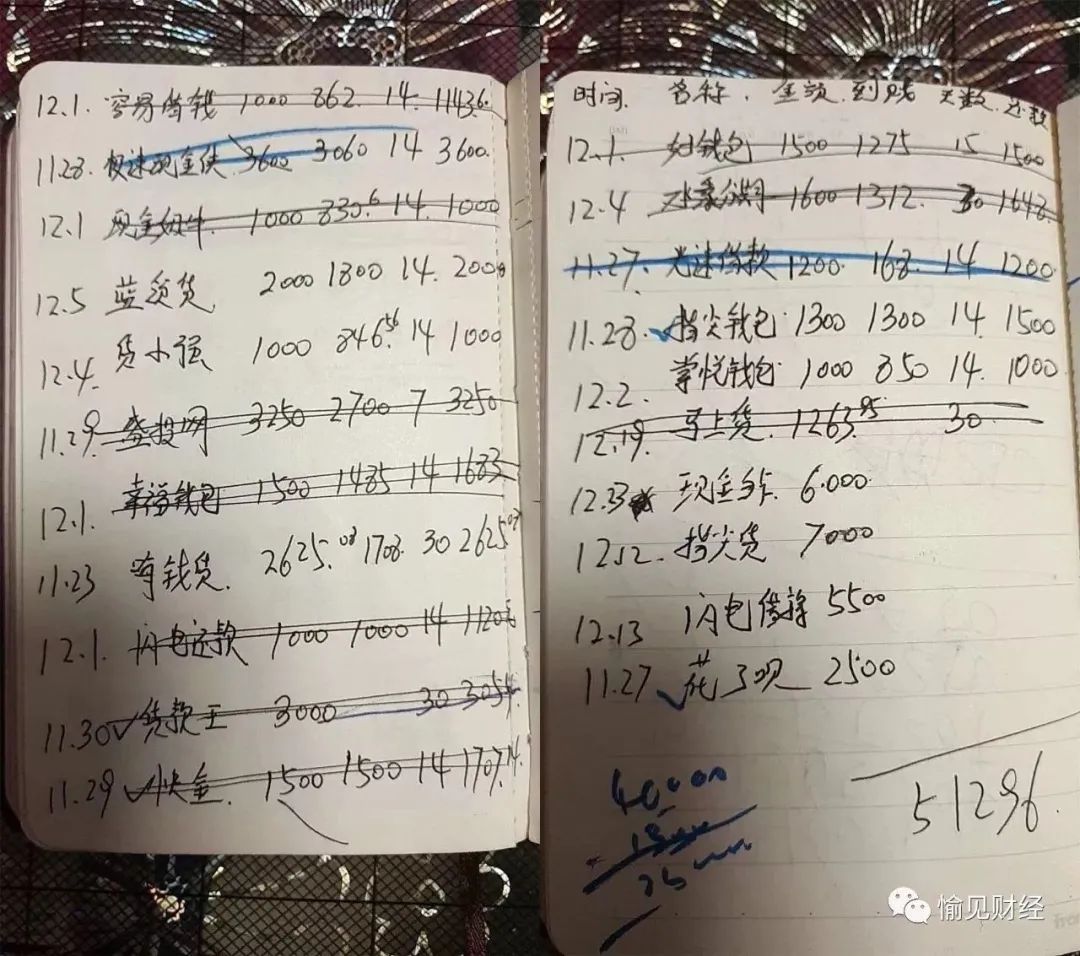 12.1. 容易借钱 1000 862. 14. 1143.6
11.28. 极速现金侠 3600 3060 14 3600.
12.1 现金奶牛 1000 830.6 14. 1000
12.5 蓝领贷 2000 1800 14. 2000
12.4. 贷小强 1000 846.56 14 1000
11.29. 盛投网 3250 2700 7 3250
12.1. 幸福钱包 1500 1485 14 1683
11.23 有钱贷. 2625.08 1708. 30 2625.08
12.1. 闪电还款 1000 1000 14 1120
11.30 ✓贷款王 3000 30 3054
11.29 ✓快金. 1500 1500 14 1707.14
时间. 名称. 金额. 到账 天数. 还款
12.1. 好钱包 1500 1275 15 1500
12.4 水象分期 1600 1312. 30 1648
11.27. 光速借款 1200. 168. 14 1200
11.28. ✓指尖钱包 1300 1300 14 1500
12.2. 掌悦钱包 1000 850 14. 1000
12.19. 马上贷. 1263.95 30
12.3 现金 6000.
12.12. 指尖贷 7000
12.13 闪电借 5500
11.27 ✓花了呗 2500
40000
51296.
愉见财经